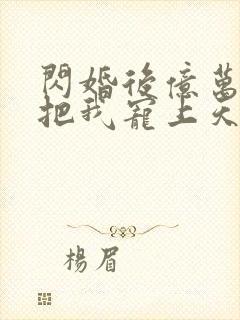 閃婚後億萬
把我寵上天
楊眉